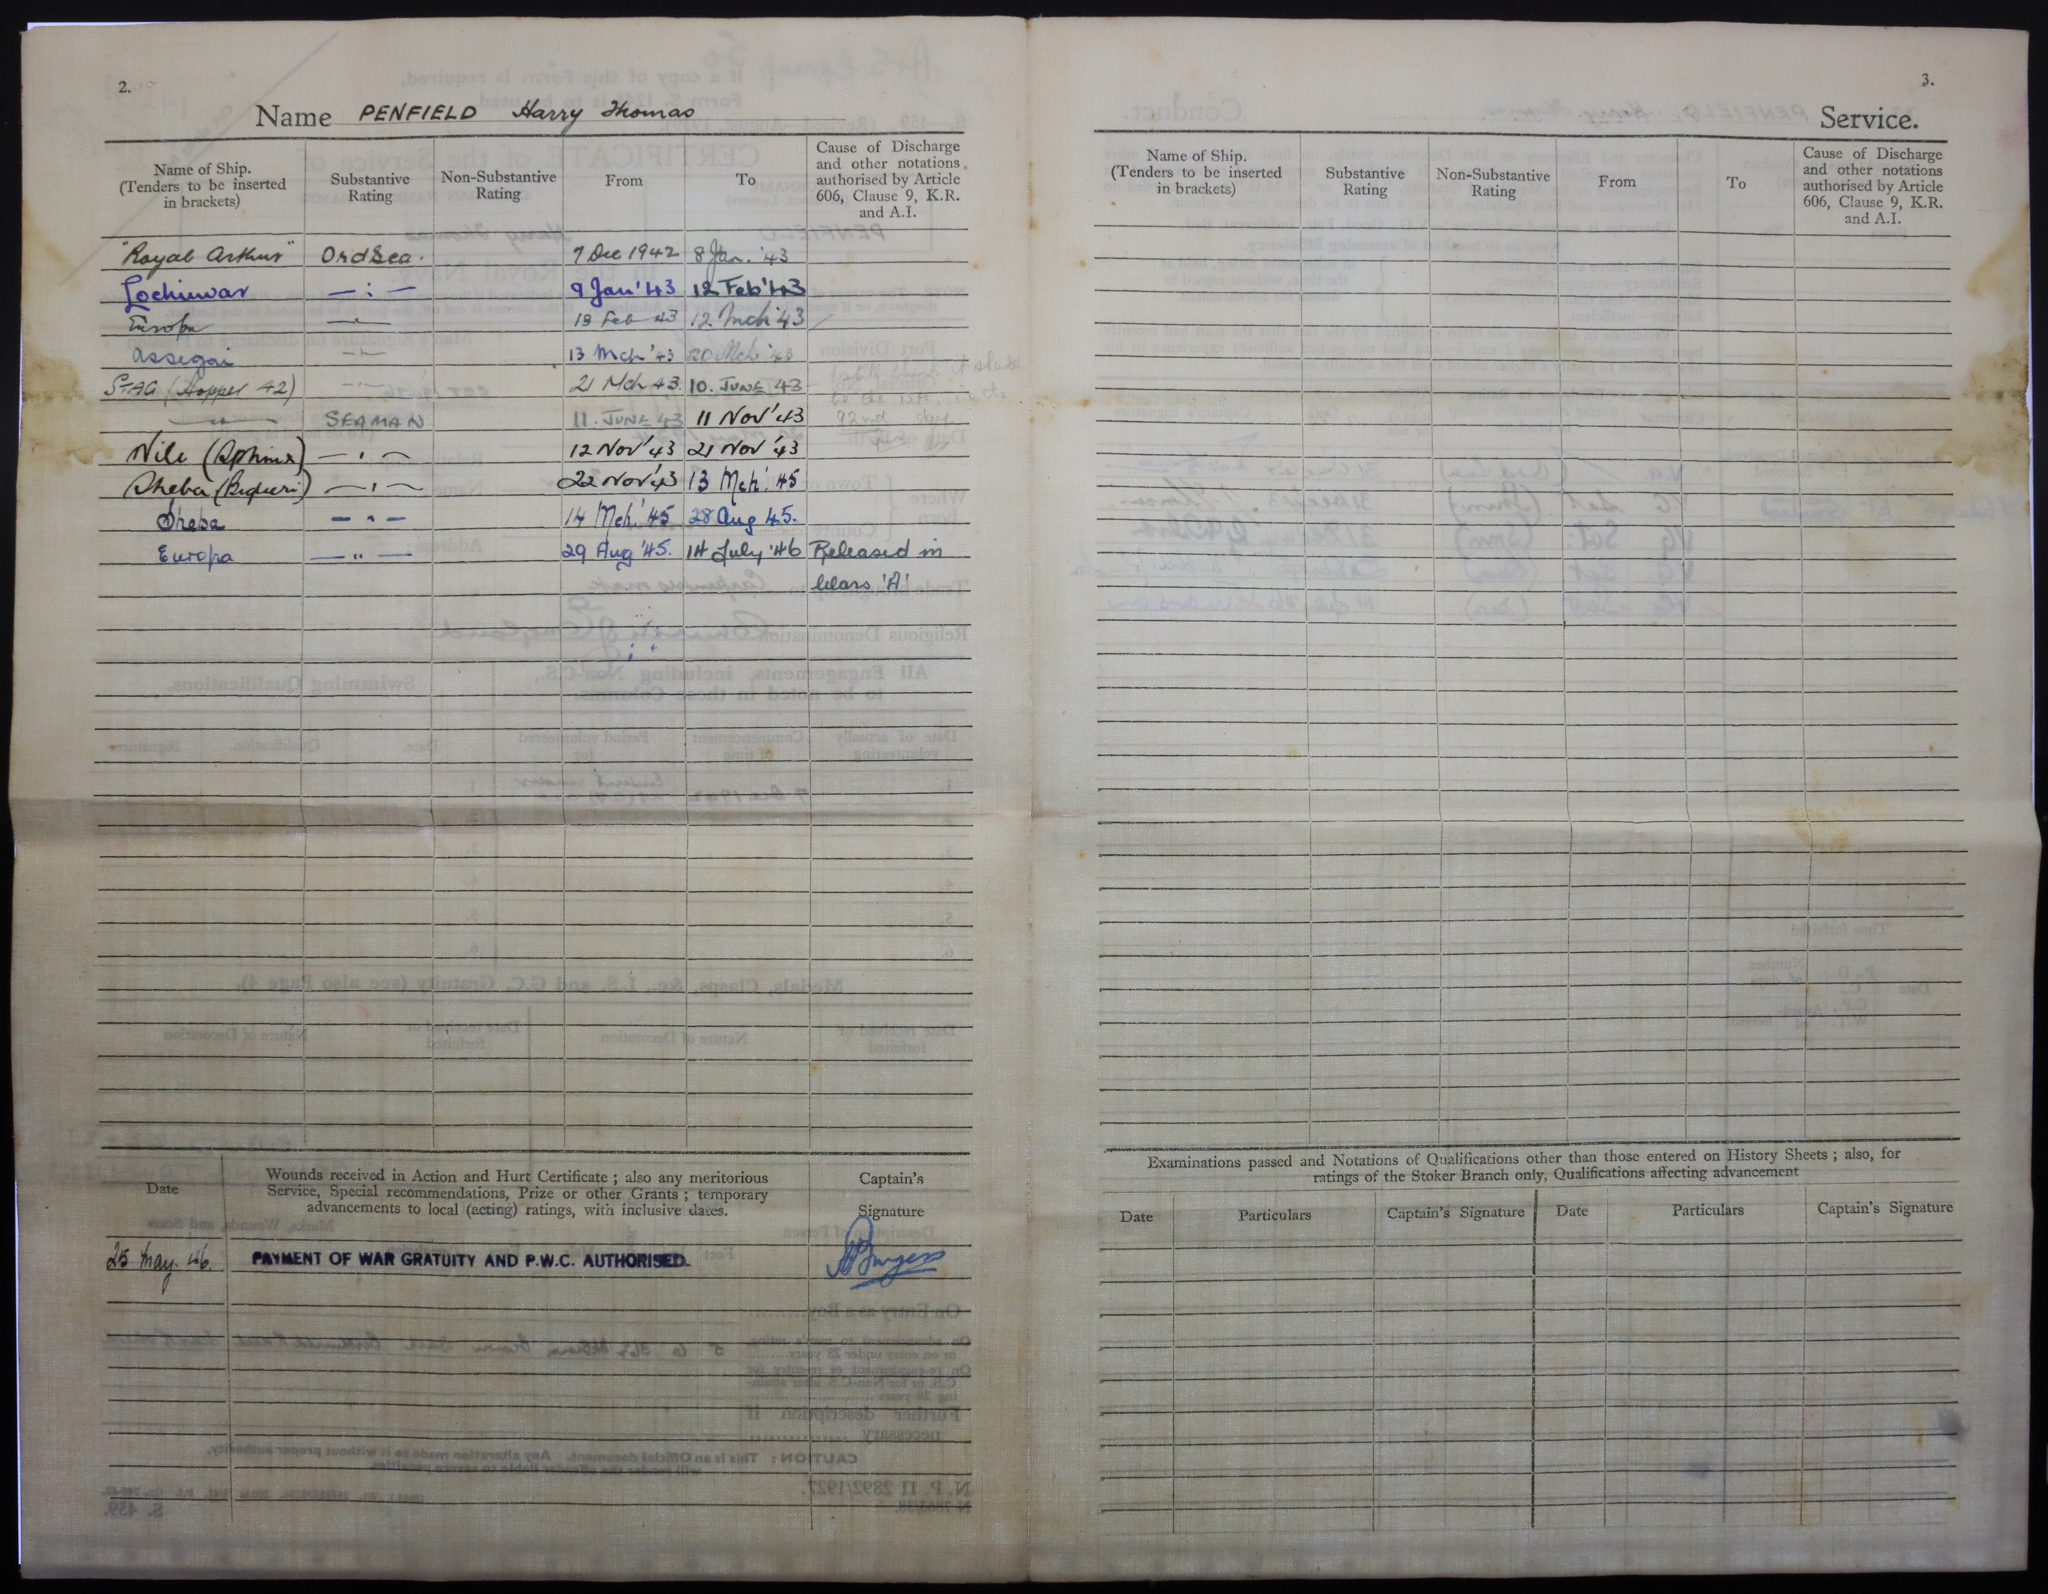 2.
Name PENFIELD Harry Thomas
Name of Ship.
(Tenders to be inserted
in brackets)
Substantive
Rating
Non-Substantive
Rating
From
To
Cause of Discharge
and other notations
authorised by Article
606, Clause 9, K.R.
and A.I.
"Royal Arthur" Ord Sea. 7 Dec 1942 8 Jan. '43
Lochinvar — : — 9 Jan '43 12 Feb '43
Europa 13 Feb 43 12 Mch '43
Assegai 13 Mch '43 20 Mch '43
STAG (Hopper 42) 21 Mch 43. 10. JUNE 43
SEAMAN 11. JUNE 43 11 Nov '43
92nd day
Nile (Sphinx) 12 Nov '43 21 Nov '43
Sheba 22 Nov '43 13 Mch '45
Sheba — " — 14 Mch '45 28 Aug 45.
Europa — " — 29 Aug '45. 14 July '46 Released in
Class 'A'
Date
Wounds received in Action and Hurt Certificate ; also any meritorious
Service, Special recommendations, Prize or other Grants ; temporary
advancements to local (acting) ratings, with inclusive dates.
Captain's
Signature
25 May. 46. PAYMENT OF WAR GRATUITY AND P.W.C. AUTHORISED.
3.
Service.
Name of Ship.
(Tenders to be inserted
in brackets)
Substantive
Rating
Non-Substantive
Rating
From
To
Cause of Discharge
and other notations
authorised by Article
606, Clause 9, K.R.
and A.I.
Examinations passed and Notations of Qualifications other than those entered on History Sheets ; also, for
ratings of the Stoker Branch only, Qualifications affecting advancement
Date
Particulars
Captain's Signature
Date
Particulars
Captain's Signature